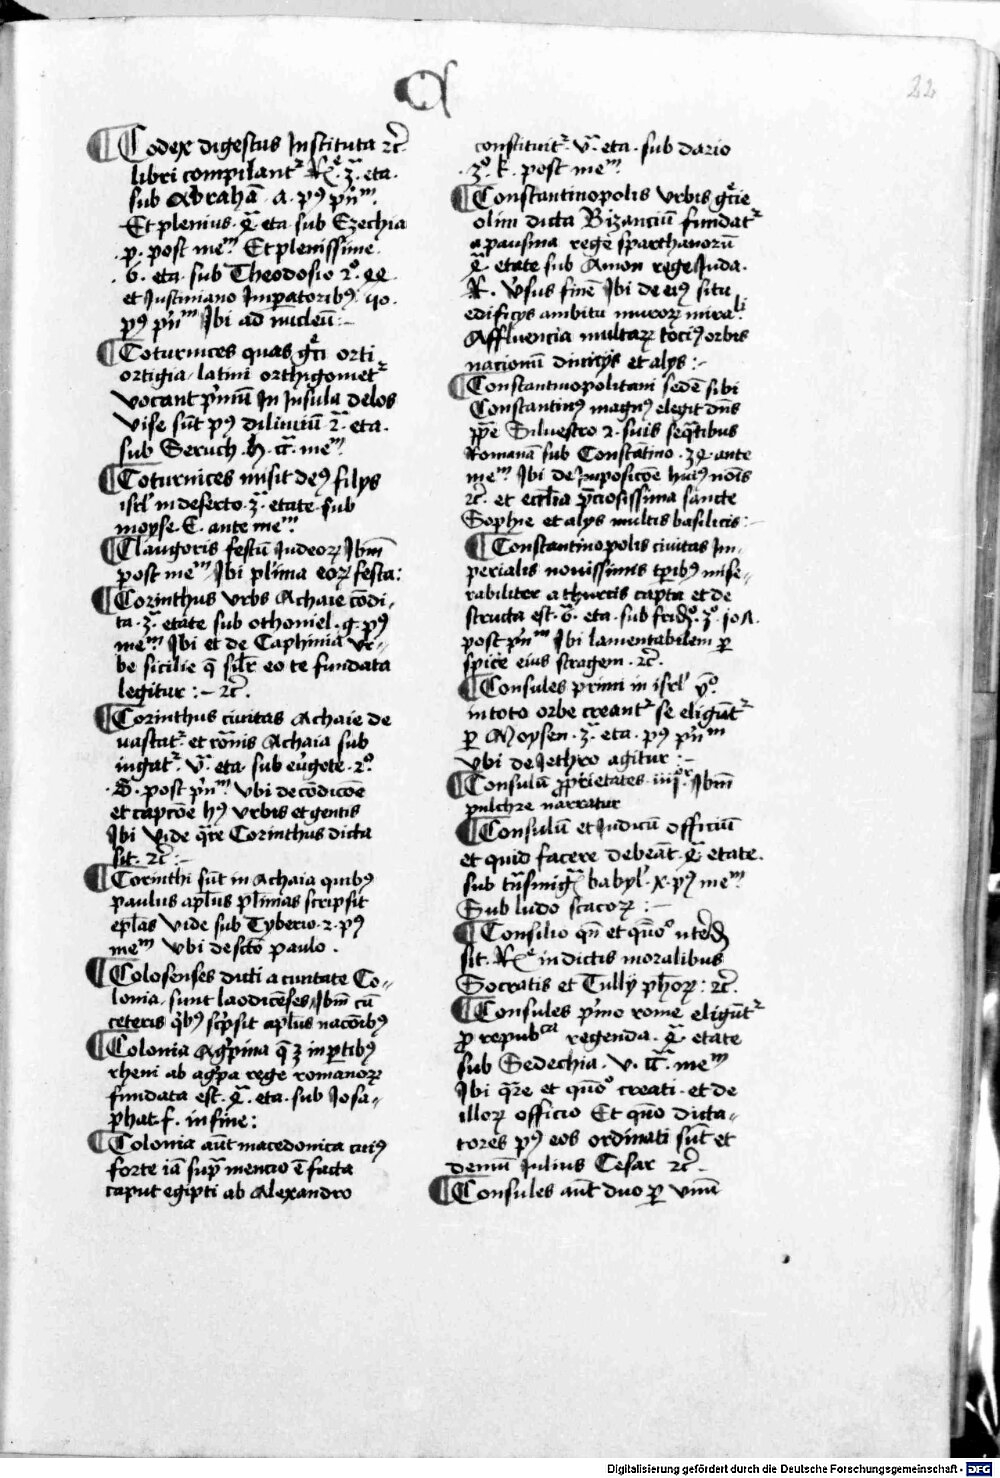 C
22
¶ Codex digestus Instituta ⁊c̄
libri compilant᷑ Rͨ. 3ͣ. eta.
sub Abrahā. a. pꝰ pn̄ᵐ.
Et plenius. 4ͣ eta. sub Ezechia
p. post meᵐ Et plenissime.
6. eta. sub Theodosio 2°. 44.
et Justiniano Imꝑatoribꝰ. 40.
pꝰ pn̄ᵐ Ibi ad nucleū :-
¶ Coturnices quas gͤci orti
ortigia. latini orthigomet᷑
vocant pͥmū In Insula delos
vise sūt pꝰ diluuiū 2ͣ. eta.
sub Seruch. h. meᵐ
¶ Coturnices misit deꝰ filijs
isrl' in deserto. 3ͣ. etate. sub
moyse. C. ante meᵐ
¶ Clangoris festū Judeoꝝ Ibm̄
post meᵐ Ibi plͥma eoꝝ festa :
¶ Corinthus vrbs Achaie cōdi,,
ta. 3ͣ. etate sub othoniel. g. pꝰ
meᵐ Ibi et de Caphinia vr-
be sicilie q̄ silͬ eo te fundata
legitur :- ⁊c̄.
¶ Corinthus ciuitas Achaie de
uastat᷑ et rōnis Achaia sub
iugat᷑. vͣ. eta. sub eu͛gete. 2°.
d. post pn̄ᵐ vbi de cōdicōe
et capcōe hꝰ vrbis et gentis
Ibi vide q̄re Corinthus dicta
sit. ⁊c̄ :-
¶ Corinthi sūt in Achaia quibꝰ
paulus apl̄us plͥmas scripsit
epl̄as vide sub Tyberio. 2. pꝰ
meᵐ vbi de scto paulo.
¶ Colosenses dicti a ciuitate Co,,
lonia. sunt laodicēses, Ibm̄ cū
ceteris qͥbꝰ scͥpsit apl̄us nacōibꝰ
¶ Colonia Agͥpina q̄ 3 in ꝑtibꝰ
rheni ab agͥpa rege romanoꝝ
fundata est. 4ͣ. eta. sub Josa,,
phat. f. in fine :
¶ Colonia aūt macedonica cuiꝰ
forte iā supͣ mencio ē facta
caput egipti ab Alexandro
constituit᷑. vͣ. eta. sub dario
3°. k. post meᵐ
¶ Constantinopolis vrbis gͤcie
olim dicta Bizanciū fundat᷑
a pausina rege sparthanorū
4ͣ etate sub Amon rege Juda.
R. v͛sus finē Ibi de eiꝰ situ
edificijs ambitu muroꝝ mirabˡⁱ
Affluencia multaꝝ tociꝰ orbis
nacionū diuicijs et alijs :-
¶ Constantinopolitani sedē sibi
Constantinꝰ magnꝰ elegit dn̄s
ꝓpͤ Siluestro 2. suis seq̄tibus
Romanā sub Constātino. 34. ante
meᵐ Ibi de imposicōe huiꝰ nōis
⁊c̄. et eccl̄ia p̄ciosissima sancte
Sophie et alijs multis basilicis :-
¶ Constantinopolis ciuitas Im,,
perialis nouissimis tp̄ribꝰ mise,,
rabiliter a thurcis capta et de
structa est. 6ͣ. eta. sub fridͦ. 3°. 
post pn̄ᵐ Ibi lamentabilem ꝑ
spice eius stragem. ⁊c̄.
¶ Consules primi in isrl' v°.
in toto orbe creant᷑ se eligūt᷑
ꝑ Moysen. 3ͣ. eta. pꝰ pn̄ᵐ
vbi de Jethro agitur :-
¶ Consulū ꝓprietates. iiijᵒʳ. Ibm̄
pulchre narratur
¶ Consulū et Iudicū officiū
et quid facere debeāt. 4ͣ etate.
sub tn̄smigͣ babyl'. x. pꝰ meᵐ
Sub ludo scacoꝝ :-
¶ Consilio qn̄ et quōº vtend
sit. Rͨ in dictis moralibus
Socratis et Tullij ph̄oꝝ : ⁊c̄.
¶ Consules pͥmo rome eligūt᷑
ꝓ repubᶜᵃ regenda. 4ͣ etate
sub Sedechia. v. meᵐ
Ibi q̄re et quōº creati. et de
illoꝝ officio Et quō dicta,,
tores pꝰ eos ordinati sūt et
demū Iulius Cesar ⁊c̄ -
¶ Consules aūt duo ꝑ vnū
Digitalisierung gefördert durch die Deutsche Forschungsgemeinschaft - DFG